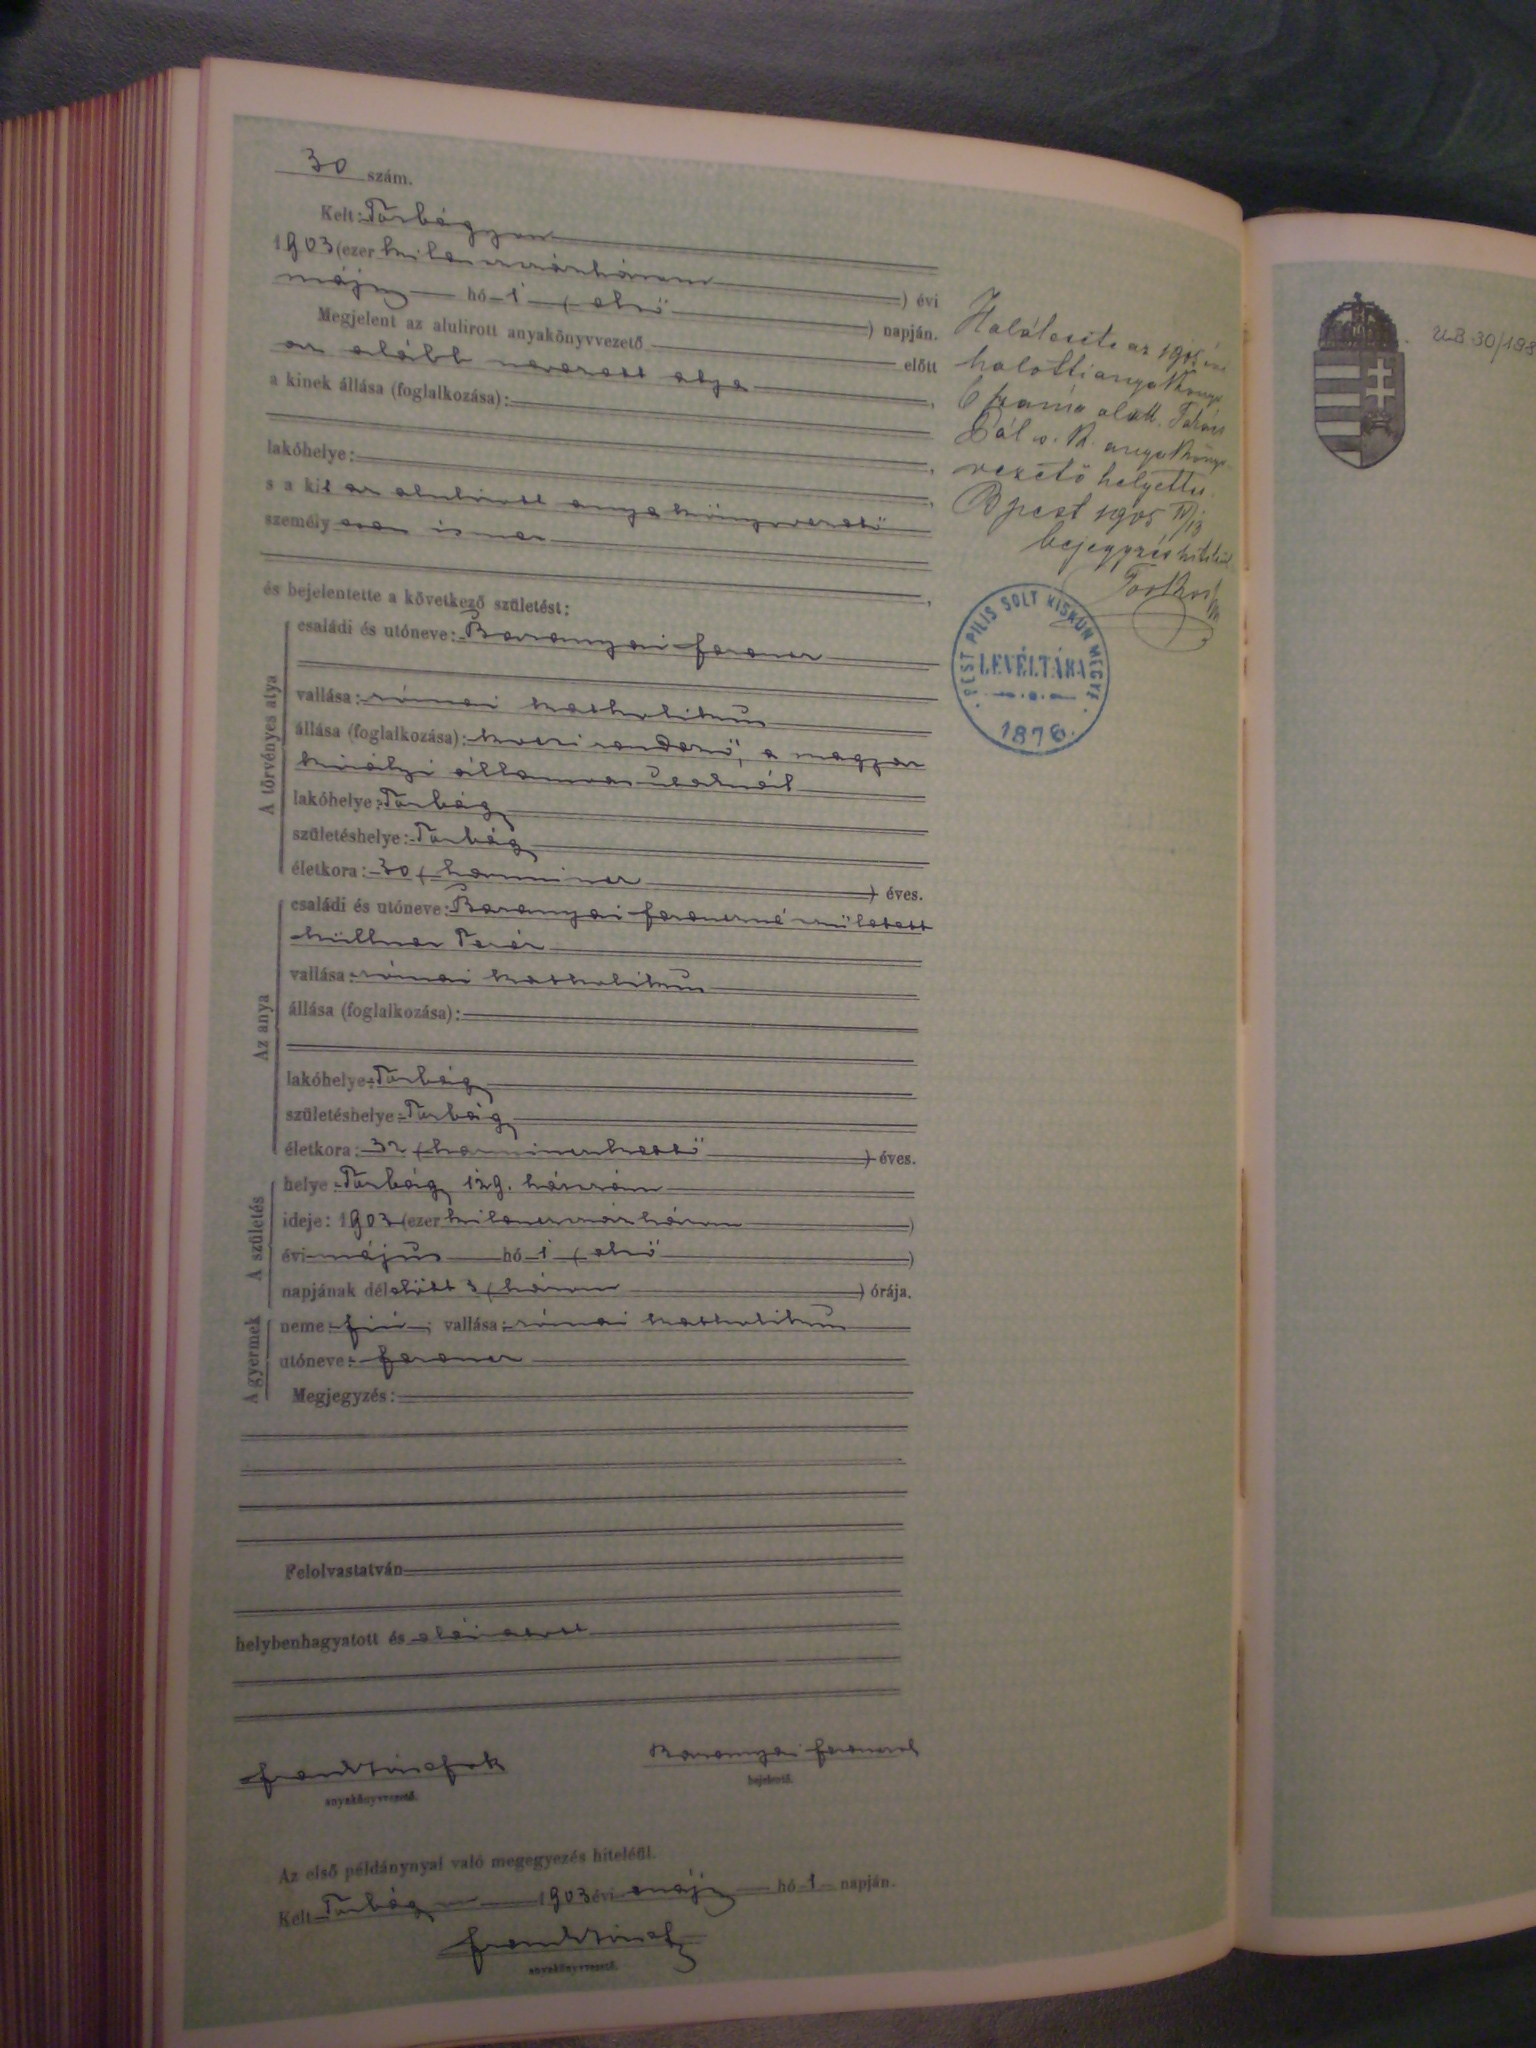 30 szám.
Kelt: Törbágyon
1903 (ezer kilenczszázhárom ) évi
május hó 1 ( első ) napján.
Megjelent az alulirott anyakönyvvezető előtt
az alább nevezett atya ,
a kinek állása (foglalkozása):
,
lakóhelye:
,
s a kit az alulirott anyakönyvvezető
személyesen ismer
,
és bejelentette a következő születést:
A törvényes atya
családi és utóneve: Baranyai Ferencz
vallása: római katholikus
állása (foglalkozása): kocsirendező, a magyar
királyi államvasutaknál
lakóhelye: Törbág
születéshelye: Törbág
életkora: 30 ( harmincz ) éves.
Az anya
családi és utóneve: Baranyai Ferenczné született
Küllner Teréz
vallása: római katholikus
állása (foglalkozása):
lakóhelye: Törbág
születéshelye: Törbág
életkora: 32 (harminczkettő ) éves.
A születés
helye: Törbág 129. házszám
ideje: 1903 (ezer kilenczszázhárom )
évi május hó 1 ( első )
napjának délelőtt 3 (három ) órája.
A gyermek
neme: fiú ; vallása: római katholikus
utóneve: Ferencz
Megjegyzés:
Felolvastatván
helybenhagyatott és aláiratott
Baranyai Ferencz
anyakönyvvezető. bejelentő.
Az első példánynyal való megegyezés hiteléül.
Kelt Törbág 1903 évi május hó 1 napján.
anyakönyvvezető.
Halálesete az 1905 évi
halotti anyakönyv
6 száma alatt. Takács
Pál s. k. anyakönyv
vezető helyettes.
Bpest 1905 IV/13
bejegyzés hiteléül
PEST PILIS SOLT KISKUN MEGYE
LEVÉLTÁRA
1876.